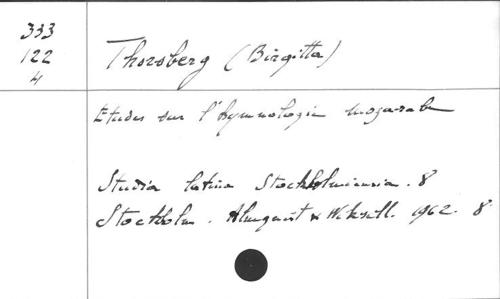 333
122
4
Thorsberg (Birgitta)
Etudes sur l'hymnologie mozarabe
Studia latina Stockholmiensia. 8
Stockholm. Almquist & Wiksell. 1962. 8°